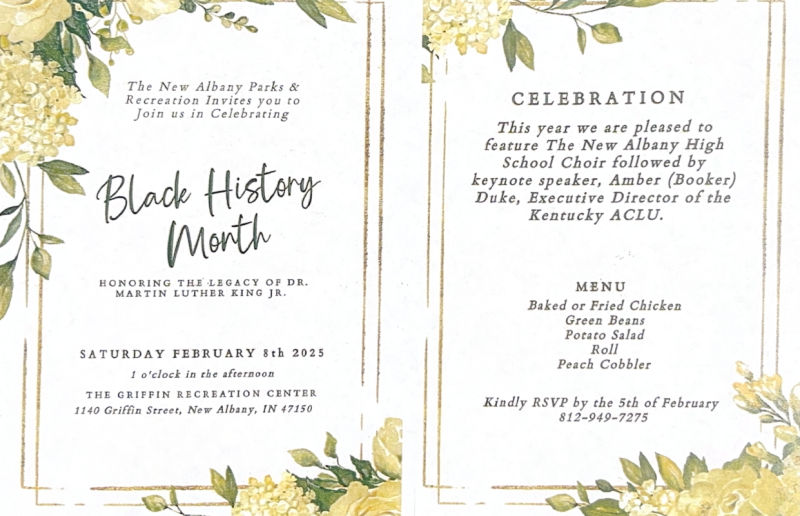 The New Albany Parks &
Recreation Invites you to
Join us in Celebrating
Black History
Month
HONORING THE LEGACY OF DR.
MARTIN LUTHER KING JR.
SATURDAY FEBRUARY 8th 2025
1 o'clock in the afternoon
THE GRIFFIN RECREATION CENTER
1140 Griffin Street, New Albany, IN 47150
CELEBRATION
This year we are pleased to
feature The New Albany High
School Choir followed by
keynote speaker, Amber (Booker)
Duke, Executive Director of the
Kentucky ACLU.
MENU
Baked or Fried Chicken
Green Beans
Potato Salad
Roll
Peach Cobbler
Kindly RSVP by the 5th of February
812-949-7275